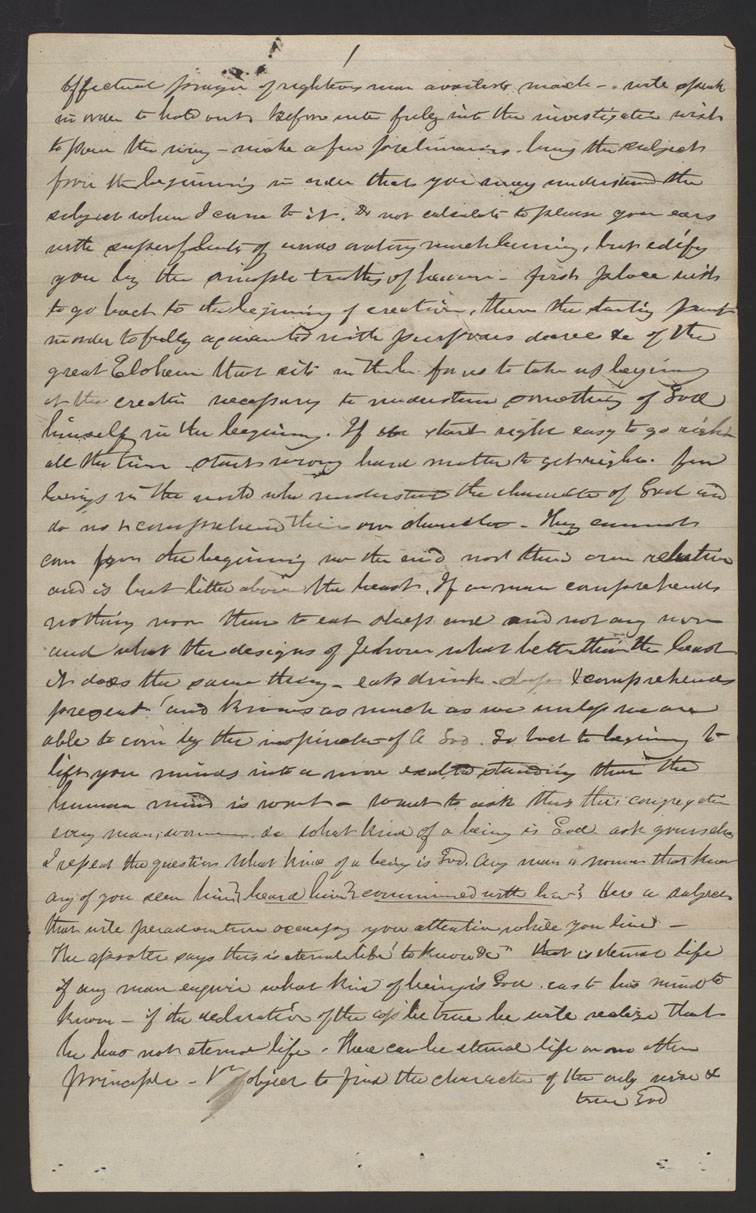 1
Effectual prayer of righteous man availeth much - will speak
in order to hold out before enter fully into the investigation wish
to pave the way - make a few preliminaries. bring the subject
from the beginning in order that you may understand the
subject when I come to it. do not calculate to please your ears
with superfluity of words oratory much learning, but edify
you by the simple truths of heaven - first place wish
to go back to the beginning of creation, there the starting point
in order to fully acquainted with purposes decree &c of the
great Eloheim that sits in the h. for us to take up beginning
at the creation necessary to understand something of God
himself in the beginning. If we start right easy to go right
all the time - start wrong hard matter to get right. few
beings in the world who understand the character of God and
do not comprehend their own character - They cannot
com from the beginning nor the end nor their own relation
and is but little above the beast. If a man comprehends
nothing more than to eat sleep and not any more
and what the designs of Jehovah what better than the beast
it does the same thing - eats drink sleeps & comprehends
present and knows as much as we unless we are
able to com by the inspiration of A God. Go back to beginning to
lift your minds into a more exalted standing than the
human mind is wont - want to ask this congregation
every man, woman, &c what kind of a being is God ask yourselves
I repeat the question What kind of a being is God. Any man or woman that know
any of you seen him? heard him? communed with him? Here a subject
that will peradventure occupy your attention while you live -
The apostle says this is eternal life to know &c that is eternal life
if any man enquire what kind of being is God. cast his mind to
know - if the declaration of the ap be true he will realize that
he has not eternal life - there can be eternal life on no other
principle - 1st object to find the character of the only wise &
true God